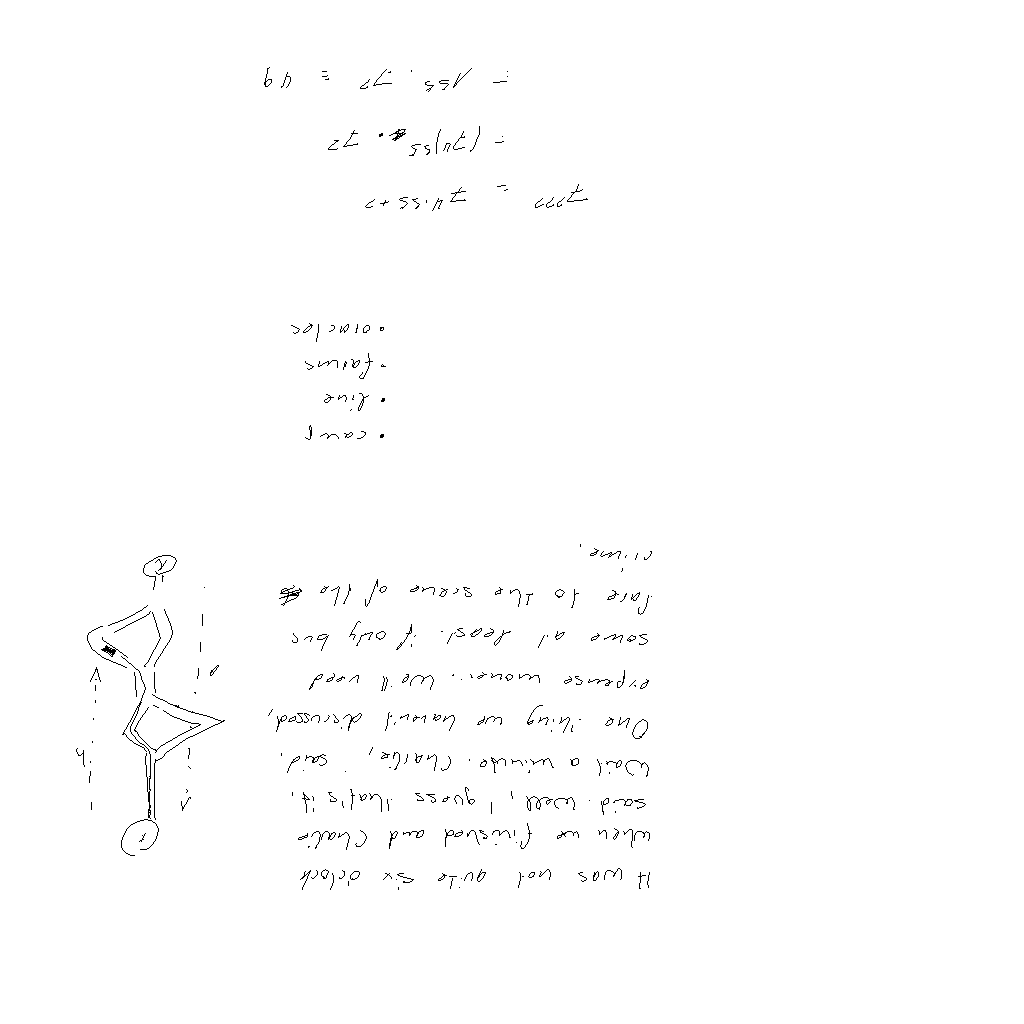 It was not quite six o'clock
when we finished and Chalie
said. Well, I guess that's it.
Wait a minute. Charlie, said.
One thing we haven't discussed,
expense money. We'll need
some at least. if only bus
fare to the scene of the
crime.
• camp
• live
• faims
• oracles
7²²² = 7⁴·⁵⁵⁺²
= (7⁴)⁵⁵ · 7²
= 1⁵⁵ · 7² = 49
1
2
h